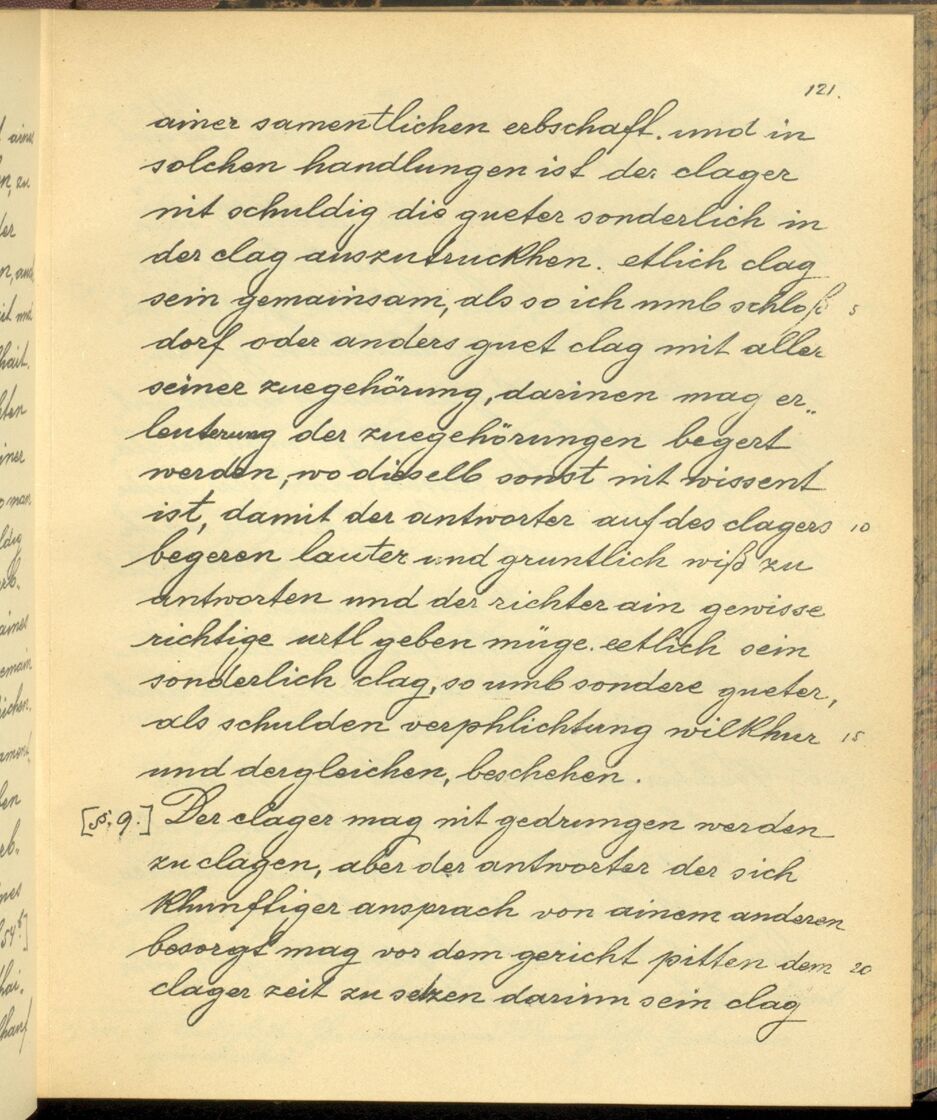 121.
ainer samentlichen erbschaft. und in
solchen handlungen ist der clager
nit schuldig die gueter sonderlich in
der clag auszutruckhen. etlich clag
sein gemainsam, als so ich umb schloß 5
dorf oder anders guet clag mit aller
seiner zuegehörung, darinen mag er„
leuterung der zuegehörungen begert
werden, wo dieselb sonst nit wissent
ist, damit der antworter auf des clagers 10
begeren lauter und gruntlich wiß zu
antworten und der richter ain gewisse
richtige urtl geben müge. eetlich sein
sonderlich clag, so umb sondere gueter,
als schulden verphlichtung wilkhur 15
und dergleichen, beschehen.
[§. 9.] Der clager mag nit gedrungen werden
zu clagen, aber der antworter der sich
khunftiger ansprach von ainem anderen
besorgt mag vor dem gericht pitten dem 20
clager zeit zu setzen darinn sein clag